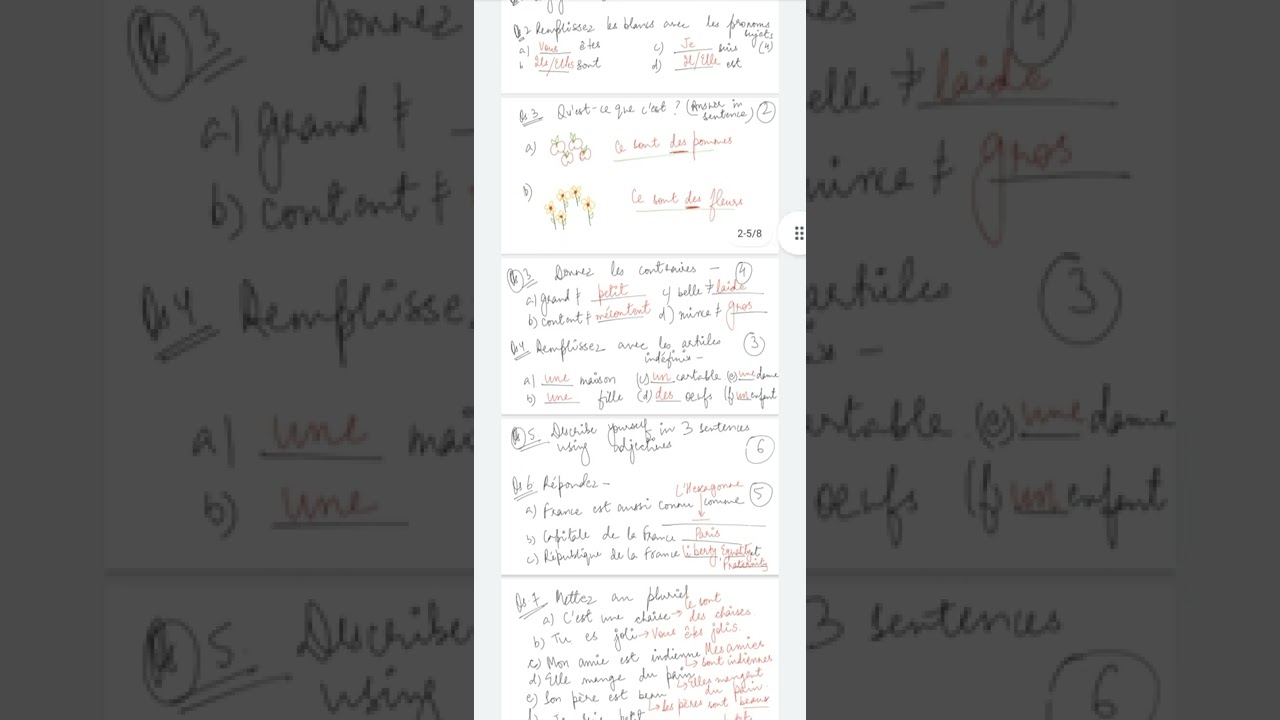 Qs 2 Remplissez les blancs avec les pronoms sujets (4)
a) Vous êtes c) Je suis
b Ils/Elles sont d) Il/Elle est
Qs 3. Qu'est-ce que c'est ? (Answer in sentence) 2
a) Ce sont des pommes
b) Ce sont des fleurs
2-5/8
Qs 3 Donnez les contraires - 4
a) grand ≠ petit c) belle ≠ laide
b) content ≠ mécontent d) mince ≠ gros
Qs 4 Remplissez avec les articles indéfinis - 3
a) une maison (c) un cartable (e) une dame
b) une fille (d) des oeufs (f) un enfant
Qs 5. Describe yourself in 3 sentences using adjectives 6
Qs 6 Répondez - 5
L'Hexagonne
a) France est aussi connu comme
b) Capitale de la France Paris
c) République de la France Liberty Equality et Fraternity
Qs 7 Mettez au pluriel
a) C'est une chaise → Ce sont des chaises.
b) Tu es joli → Vous êtes jolis.
c) Mon amie est indienne Mes amies sont indiennes
d) Elle mange du pain → Elles mangent du pain
e) Son père est beau → Ses pères sont beaux
f) Je suis petit